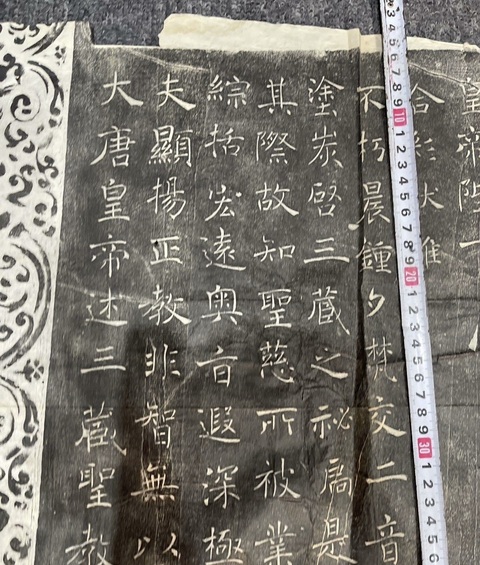 大唐皇帝述三藏聖教
夫顯揚正教非智無以
綜括宏遠奧旨遐深極
其際故知聖慈所被業
塗炭啓三藏之祕扃是
不朽晨鍾夕梵交二音
合彩伏惟
皇帝陛
3 4 5 6 7 8 9 10 1 2 3 4 5 6 7 8 9 20 1 2 3 4 5 6 7 8 9 30 1 2 3 4 5 6